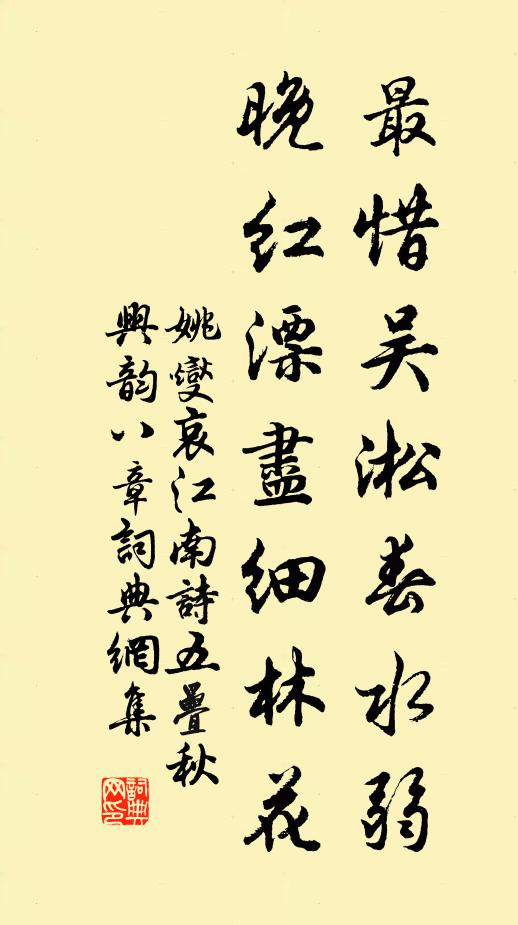 最惜吴淞春水弱
晚红漂盡细林花
姚燮哀江南詩五疊秋
興韵八章詞典網集
詞典网印